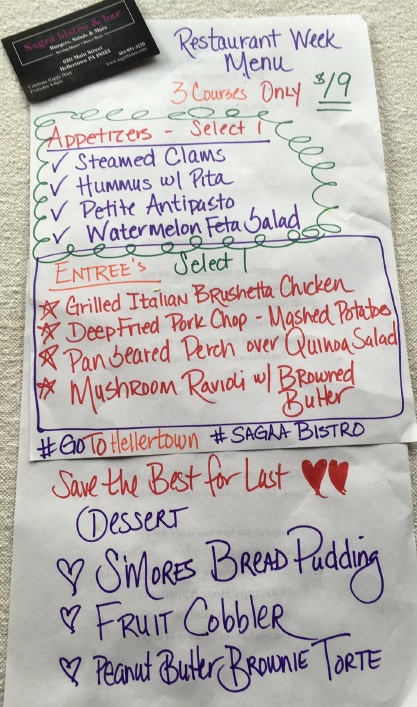 Sagra bistro & bar
Burgers, Salads & More
620 Main Street
Hellertown PA 18055
Restaurant Week
Menu
3 Courses Only $19
Appetizers - Select 1
✓ Steamed Clams
✓ Hummus w/ Pita
✓ Petite Antipasto
✓ Watermelon Feta Salad
Entree's Select 1
☆ Grilled Italian Brushetta Chicken
☆ Deep Fried Pork Chop - Mashed Potatoe
☆ Pan Seared Perch over Quinoa Salad
☆ Mushroom Ravioli w/ Browned
Butter
#GoToHellertown #SAGRA BISTRO
Save the Best for Last ♥♥
Dessert
♡ S'mores Bread Pudding
♡ Fruit Cobbler
♡ Peanut Butter Brownie Torte